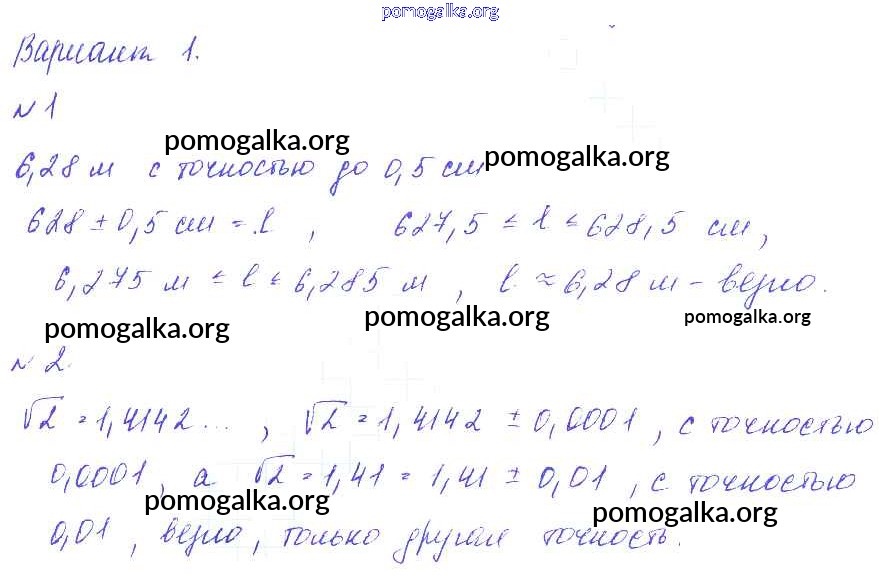 pomogalka.org
Вариант 1.
№1
pomogalka.org
6,28 м с точностью до 0,5 см pomogalka.org
628 ± 0,5 см = l, 627,5 ≤ l ≤ 628,5 см,
6,275 м ≤ l ≤ 6,285 м, l ≈ 6,28 м – верно.
pomogalka.org pomogalka.org pomogalka.org
№2.
√2 = 1,4142..., √2 = 1,4142 ± 0,0001, с точностью
0,0001, а √2 = 1,41 = 1,41 ± 0,01, с точностью
pomogalka.org pomogalka.org
0,01, верно, только другая точность.